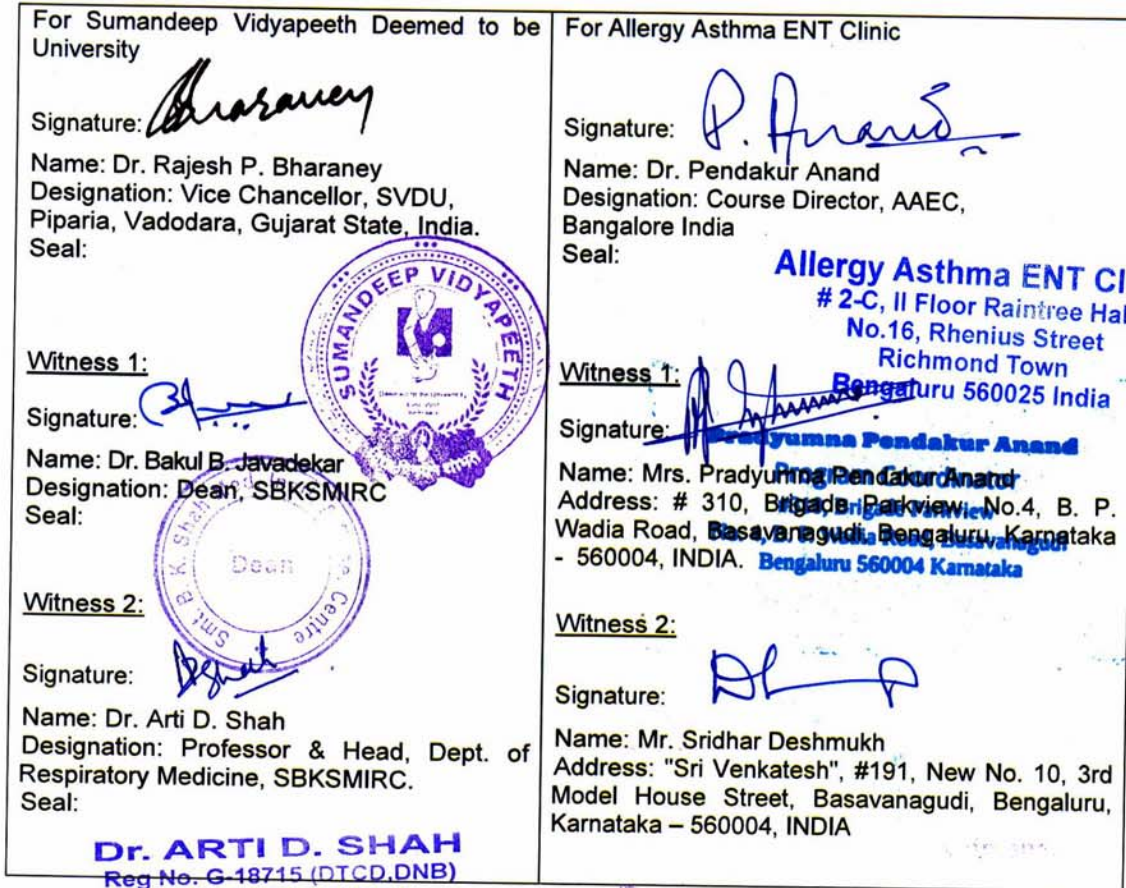 For Sumandeep Vidyapeeth Deemed to be
University
Signature:
Name: Dr. Rajesh P. Bharaney
Designation: Vice Chancellor, SVDU,
Piparia, Vadodara, Gujarat State, India.
Seal:
SUMANDEEP VIDYAPEETH
Witness 1:
Signature:
Name: Dr. Bakul B. Javadekar
Designation: Dean, SBKSMIRC
Seal:
Smt. B. K. Shah
Centre
Dean
Witness 2:
Signature:
Name: Dr. Arti D. Shah
Designation: Professor & Head, Dept. of
Respiratory Medicine, SBKSMIRC.
Seal:
Dr. ARTI D. SHAH
Reg No. G-18715 (DTCD,DNB)
For Allergy Asthma ENT Clinic
Signature: P. Anand
Name: Dr. Pendakur Anand
Designation: Course Director, AAEC,
Bangalore India
Seal:
Allergy Asthma ENT Cl
# 2-C, II Floor Raintree Hal
No.16, Rhenius Street
Richmond Town
Bengaluru 560025 India
Witness 1:
Signature:
Pradyumna Pendakur Anand
Program Coordinator
Name: Mrs. Pradyumna Pendakur Anand
Address: # 310, Brigade Parkview, No.4, B. P.
Wadia Road, Basavanagudi, Bengaluru, Karnataka
- 560004, INDIA.
Bengaluru 560004 Karnataka
Witness 2:
Signature:
Name: Mr. Sridhar Deshmukh
Address: "Sri Venkatesh", #191, New No. 10, 3rd
Model House Street, Basavanagudi, Bengaluru,
Karnataka – 560004, INDIA